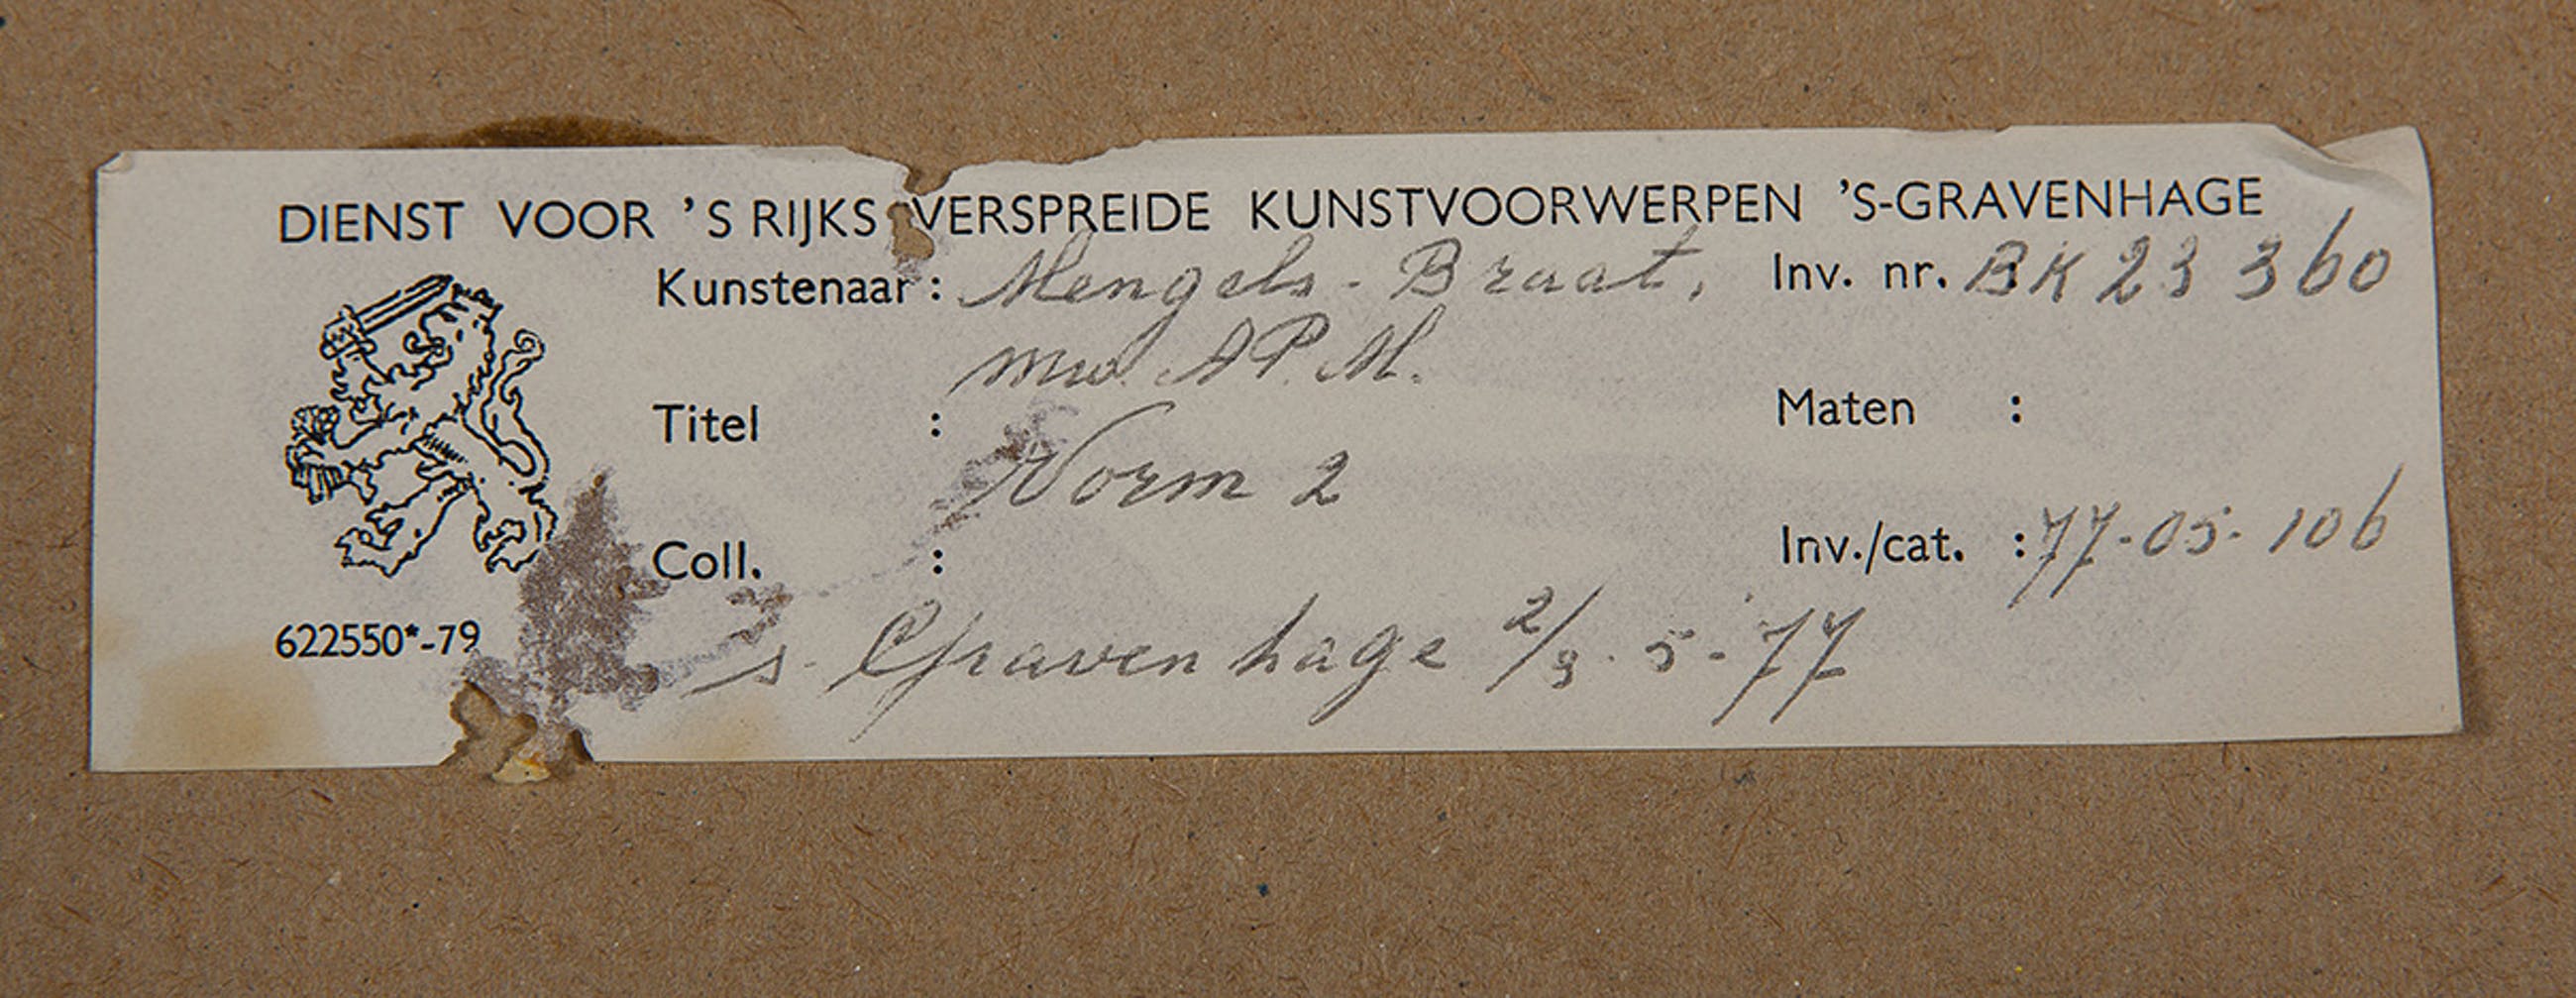 DIENST VOOR 'S RIJKS VERSPREIDE KUNSTVOORWERPEN 'S-GRAVENHAGE
Kunstenaar : Mengels-Braat, Inv. nr. BK 23 360
mw. A P. M.
Titel : Maten :
Vorm 2
Coll. : Inv./cat. : 77-05-106
622550*-79
s-Gravenhage 2/9.5-77